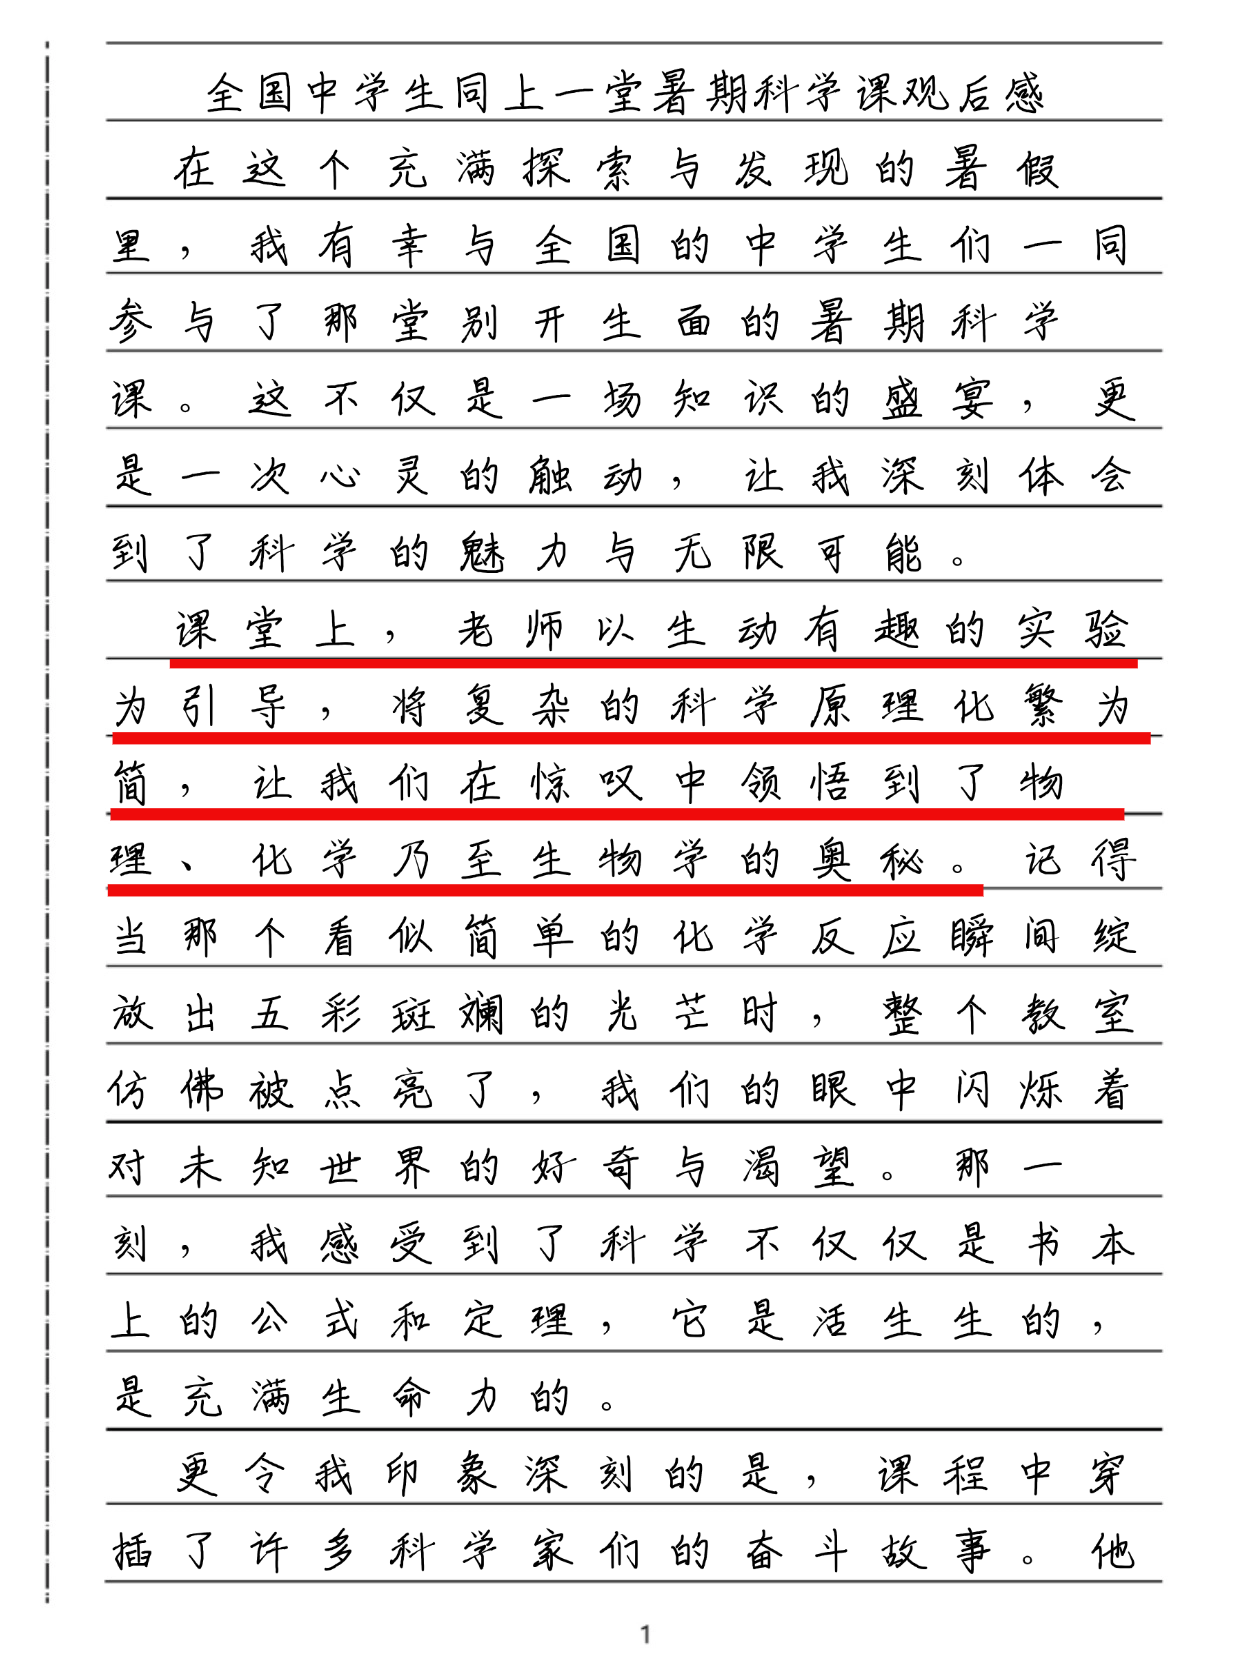 全国中学生同上一堂暑期科学课观后感
在这个充满探索与发现的暑假
里，我有幸与全国的中学生们一同
参与了那堂别开生面的暑期科学
课。这不仅是一场知识的盛宴，更
是一次心灵的触动，让我深刻体会
到了科学的魅力与无限可能。
课堂上，老师以生动有趣的实验
为引导，将复杂的科学原理化繁为
简，让我们在惊叹中领悟到了物
理、化学乃至生物学的奥秘。记得
当那个看似简单的化学反应瞬间绽
放出五彩斑斓的光芒时，整个教室
仿佛被点亮了，我们的眼中闪烁着
对未知世界的好奇与渴望。那一
刻，我感受到了科学不仅仅是书本
上的公式和定理，它是活生生的，
是充满生命力的。
更令我印象深刻的是，课程中穿
插了许多科学家们的奋斗故事。他
1